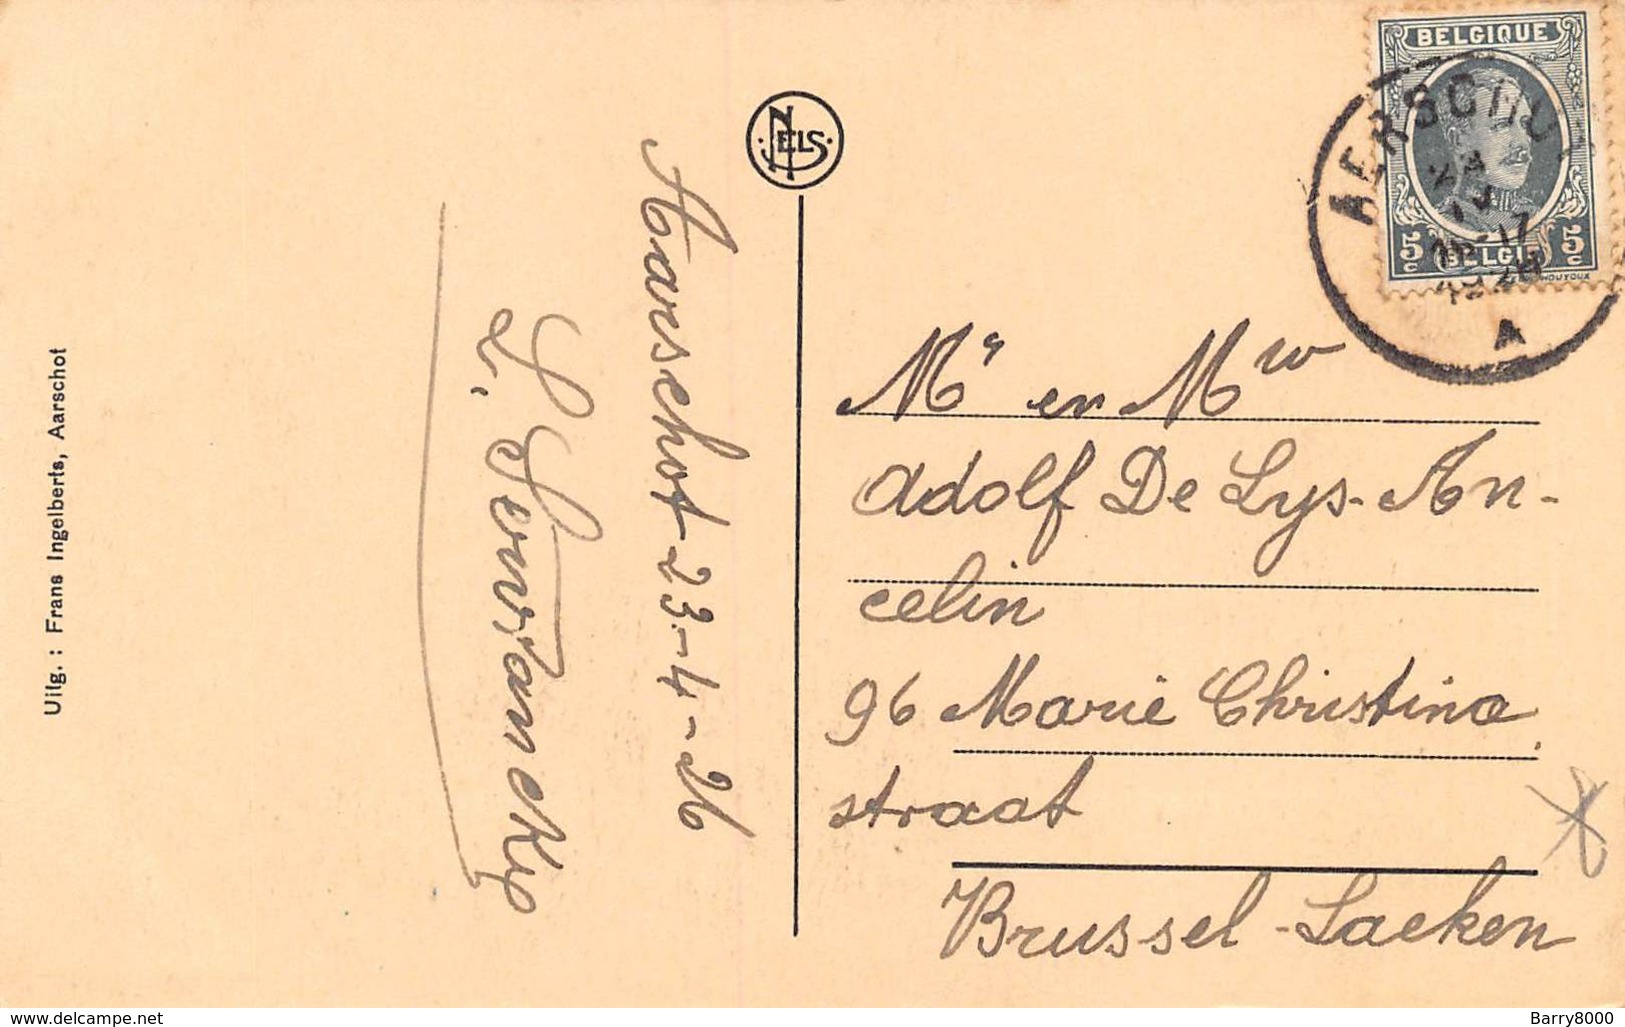 Uitg. : Frans Ingelberts, Aarschot
Aarschot 23-4-26
NELS
BELGIQUE
5c BELGIË 5c
HOUYOUX
AERSCHOT
16-17
1926
A
Mr en Mw
Adolf De Lys-An-
celin
96 Marie Christina
straat
Brussel-Laeken
www.delcampe.net
Barry8000